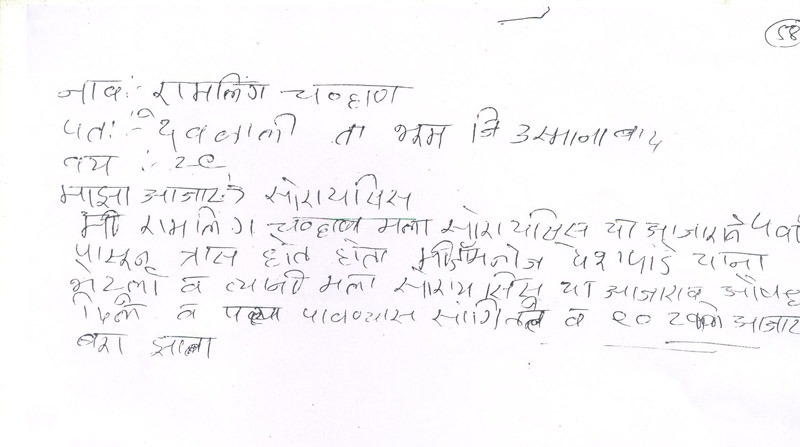 58
नाव:- रामलिंग चव्हाण
पत:- देवळाली ता भूम जि उस्मानाबाद
वय :- २९
माझा आजार:- सोरायसिस
मी रामलिंग चव्हाण मला सोरायसिस या आजाराने ५ वर्षा
पासून त्रास होत होता मी डॉ मनोज देशपांडे यांना
भेटलो व त्यांनी मला सोरायसिस या आजाराव औषध
दिले व पथ्य पाळण्यास सांगितले व १० टक्के आजार
बरा झाला